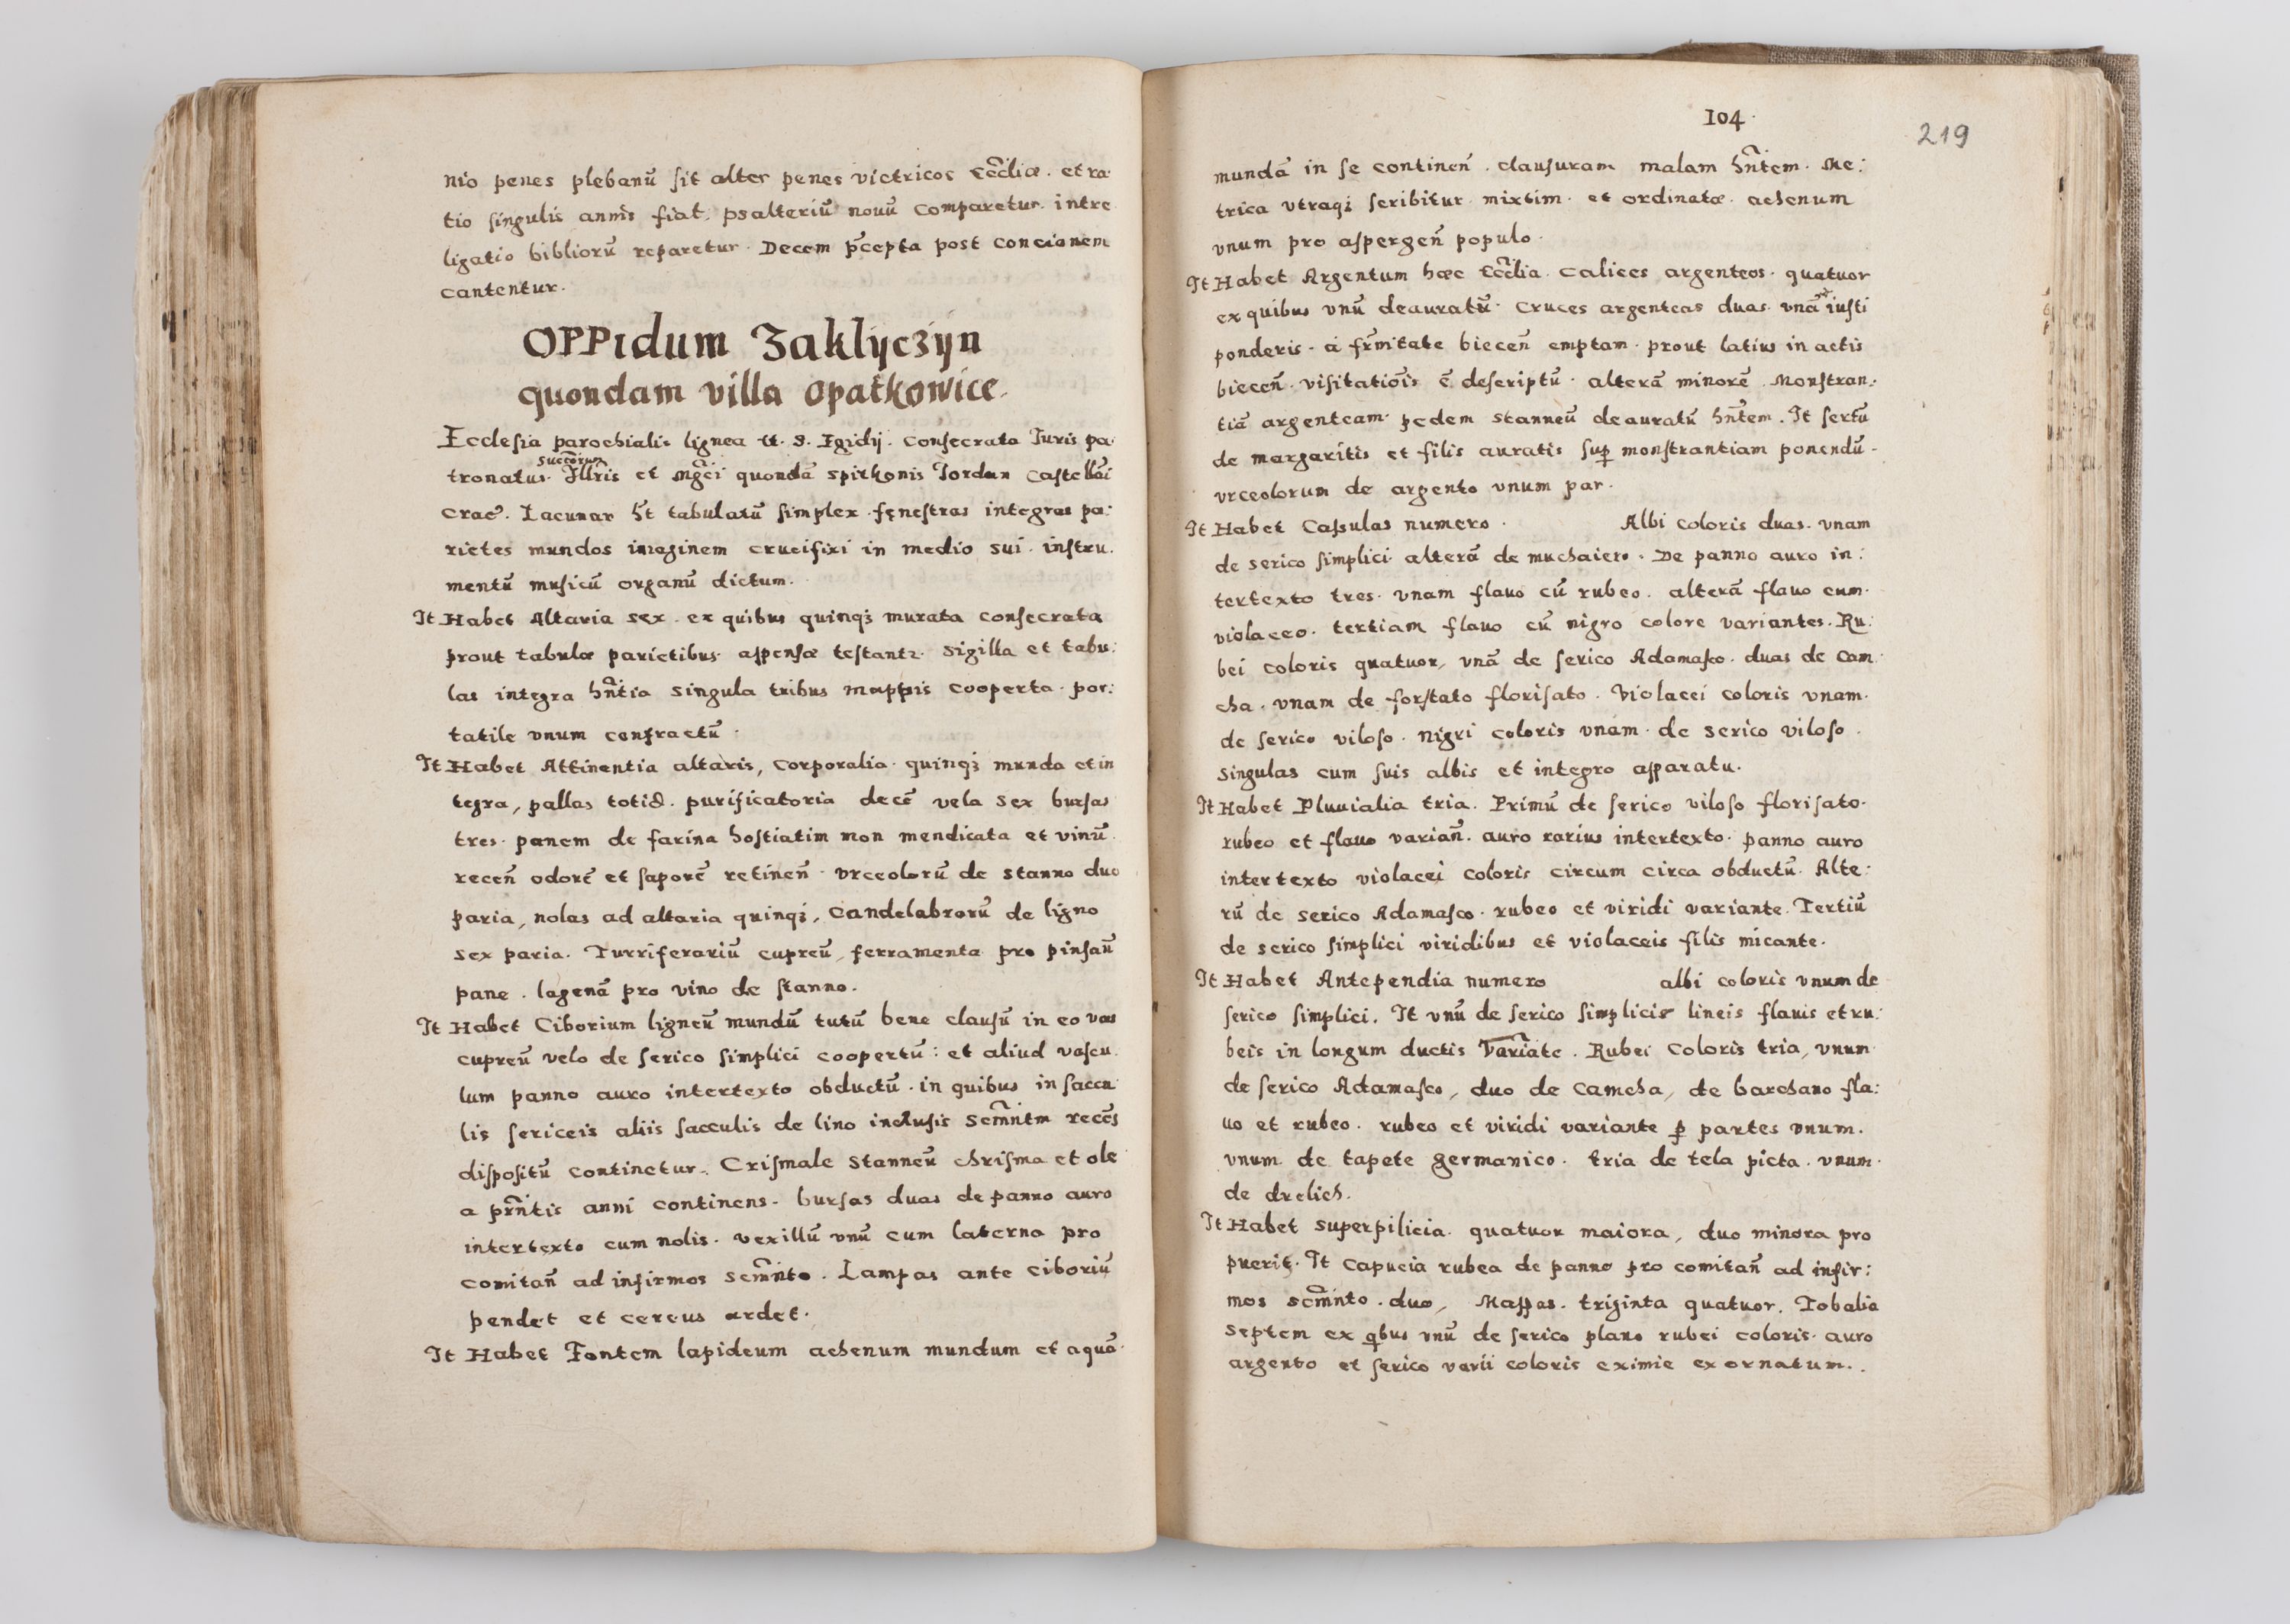 nio penes plebanū sit alter penes victricos Ecc̄liæ. et ra
tio singulis annis fiat. psalteriū nouū comparetur. intro
ligatio bibliorū reparetur. Decem p̄cepta post concionem
cantentur.
OPPidum Zaklyczyn
quondam villa Opatkowice.
Ecclesia parochialis lignea tt. S. Egidij. consecrata Juris pa:
succorum
tronatus. Ill̄ris et Mḡci quondā Spitkonis Jordan Castellāi
Crac̄. Lacunar ht̄ tabulatū simplex. fenestras integras pa:
rietes mundos imaginem crucifixi in medio sui. instru:
mentū musicū organū dictum.
It Habet Altaria sex. ex quibus quinqȝ murata consecrata
prout tabulæ parietibus appensæ testantr. sigilla et tabu:
las integra hn̄tia singula tribus mappis cooperta. por:
tatile vnum confractū.
It Habet Attinentia altaris, corporalia quinqȝ munda et in
tegra, pallas totid. purificatoria decē vela sex bursas
tres. panem de farina hostiatim non mendicata et vinū
recen̄ odorē et saporē retinen̄. vrceolorū de stanno duo
paria, nolas ad altaria quinqȝ, candelabrorū de ligno
sex paria. Turriferariū cupreū, ferramenta pro pinsan̄
pane. lagenā pro vino de stanno.
It Habet Ciborium ligneū mundū tutū bene clausū in eo vas
cupreū velo de serico simplici coopertū: et aliud vascu:
lum panno auro intertexto obductū. in quibus in saccu:
lis sericeis aliis sacculis de lino inclusis Scm̄ntm recēs
dispositū continetur. Crismale stanneū chrisma et ole
a prn̄tis anni continens. bursas duas de panno auro
intertexto cum nolis. vexillū vnū cum laterna pro
comitan̄ ad infirmos scm̄nto. Lampas ante ciboriū
pendet et cereus ardet.
It Habet Fontem lapideum ahenum mundum et aquā
104.
219
mundā in se continen̄. clausuram malam hn̄tem. Me:
trica vtraqȝ scribitur mixtim et ordinatæ. ahenum
vnum pro aspergen̄ populo.
It Habet Argentum hæc Ecc̄lia. calices argenteos. quatuor
ex quibus vnū deauratū. Cruces argenteas duas. vnā iusti
ponderis. a fr̄nitate biecen̄ emptam. prout latius in actis
biecen̄. visitatiōis ē descriptū. alterā minorē. Monstran:
tiā argenteam. pedem stanneū deauratū hn̄tem. It sertū
de margaritis et filis auratis sup̱ monstrantiam ponendū.
vrceolorum de argento vnum par.
It Habet Cassulas numero. Albi coloris duas. vnam
de serico simplici alterā de muchaiero. De panno auro in:
tertexto tres. vnam flauo cū rubeo. alterā flauo cum
violaceo. tertiam flauo cū nigro colore variantes. Ru:
bei coloris quatuor, vnā de serico Adamasco. duas de Cam
cha. vnam de forstato florisato. Violacei coloris vnam.
de serico viloso. nigri coloris vnam. de serico viloso.
singulas cum suis albis et integro apparatu.
It Habet Pluuialia tria. Primū de serico viloso florisato.
rubeo et flauo varian̄. auro rarius intertexto. panno auro
intertexto violacei coloris circum circa obductū. Alte:
rū de serico Adamasco. rubeo et viridi variante. Tertiū
de serico simplici viridibus et violaceis filis micante.
It Habet Antependia numero albi coloris vnum de
serico simplici. It vnū de serico simplicis lineis flauis et ru:
beis in longum ductis Variāte. Rubei coloris tria, vnum
de serico Adamasco, duo de Camcha, de barchano fla:
uo et rubeo. rubeo et viridi variante p̱ partes vnum.
vnum de tapete germanico. tria de tela picta. vnum.
de drelich.
It Habet superpilicia. quatuor maiora, duo minora pro
pueris. It capucia rubea de panno pro comitan̄ ad infir:
mos scm̄nto. duo, Mappas. triginta quatuor. Tobalia
septem ex qbus vnū de serico plano rubei coloris. auro
argento et serico varii coloris eximie exornatum.